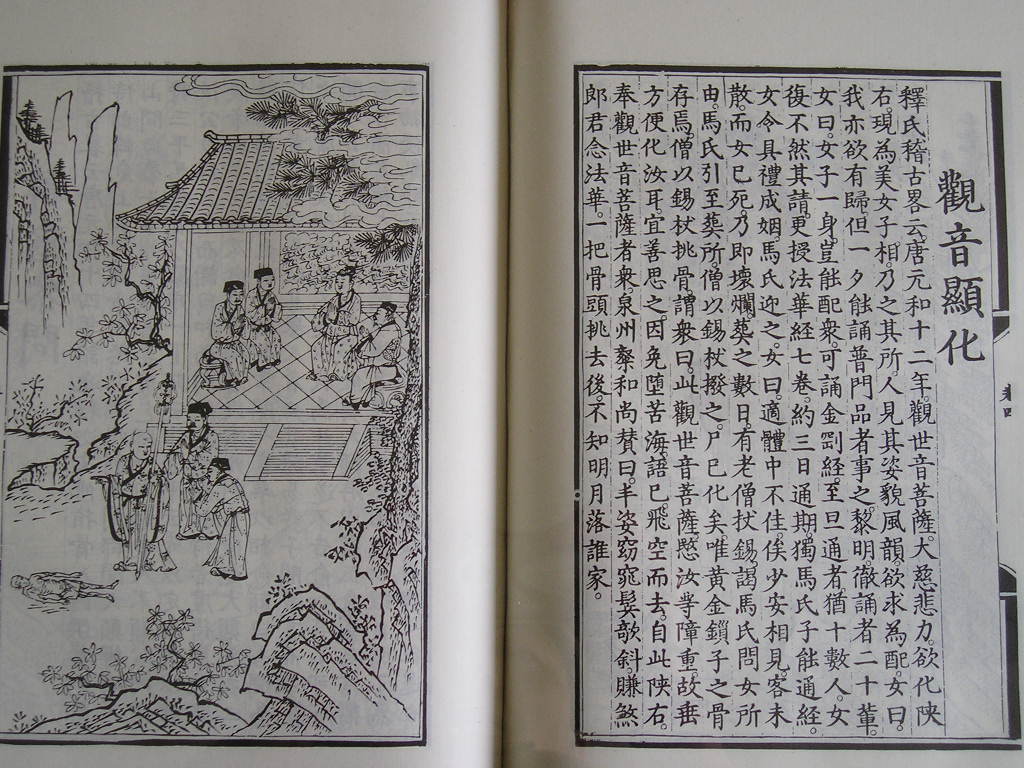 觀音顯化
釋氏稽古畧云唐元和十二年。觀世音菩薩。大慈悲力。欲化陝
右。現為美女子相。乃之其所。人見其姿貌風韻。欲求為配。女曰。
我亦欲有歸。但一夕能誦普門品者事之。黎明。徹誦者二十輩。
女曰。女子一身。豈能配衆。可誦金剛經。至旦通者。猶十數人。女
復不然其請。更授法華經七卷。約三日通。期獨馬氏子能通經。
女令具禮成姻。馬氏迎之。女曰。適體中不佳。俟少安相見。客未
散而女已死。乃即壞爛。葬之數日。有老僧杖錫。謁馬氏問女所
由。馬氏引至葬所。僧以錫杖撥之。尸已化矣。唯黃金鎖子之骨
存焉。僧以錫杖挑骨。謂衆曰。此觀世音菩薩。愍汝等障重。故垂
方便化汝耳。宜善思之。因免墮苦海。語已。飛空而去。自此陝右。
奉觀世音菩薩者衆。泉州粲和尚贊曰。丰姿窈窕鬂欹斜。賺煞
郎君念法華。一把骨頭挑去後。不知明月落誰家。
卷四